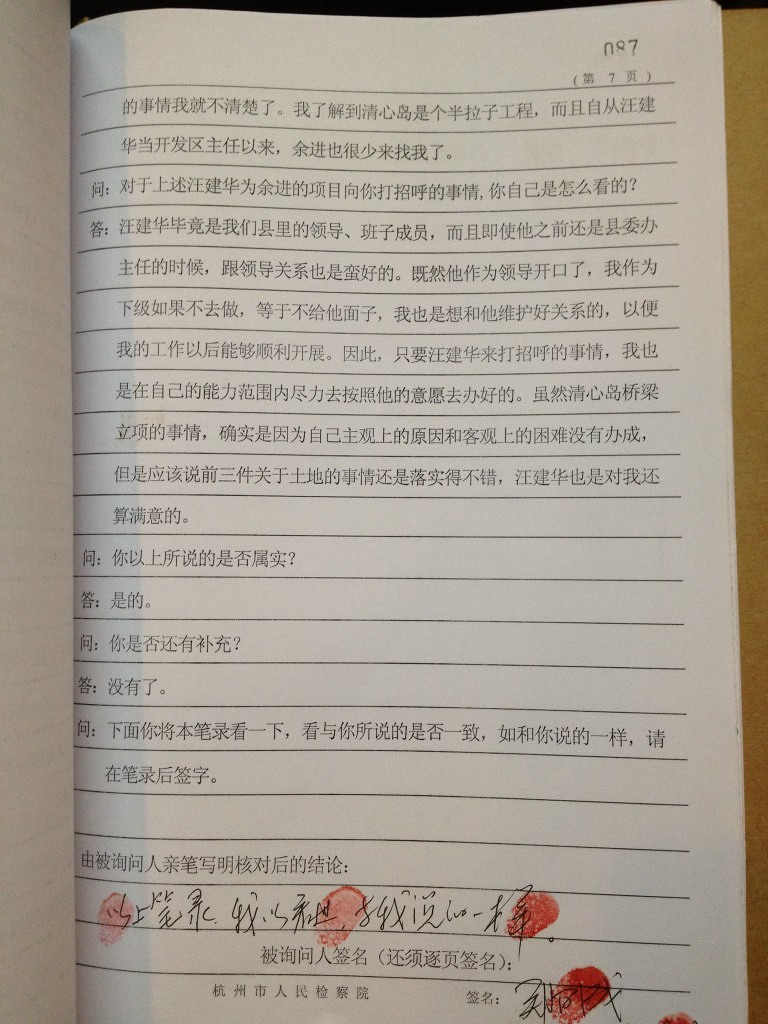 087
(第 7 页)
的事情我就不清楚了。我了解到清心岛是个半拉子工程，而且自从汪建
华当开发区主任以来，余进也很少来找我了。
问：对于上述汪建华为余进的项目向你打招呼的事情,你自己是怎么看的？
答：汪建华毕竟是我们县里的领导、班子成员，而且即使他之前还是县委办
主任的时候，跟领导关系也是蛮好的。既然他作为领导开口了，我作为
下级如果不去做，等于不给他面子，我也是想和他维护好关系的，以便
我的工作以后能够顺利开展。因此，只要汪建华来打招呼的事情，我也
是在自己的能力范围内尽力去按照他的意愿去办好的。虽然清心岛桥梁
立项的事情，确实是因为自己主观上的原因和客观上的困难没有办成，
但是应该说前三件关于土地的事情还是落实得不错，汪建华也是对我还
算满意的。
问：你以上所说的是否属实？
答：是的。
问：你是否还有补充？
答：没有了。
问：下面你将本笔录看一下，看与你所说的是否一致，如和你说的一样，请
在笔录后签字。
由被询问人亲笔写明核对后的结论：
以上笔录，我以看过，与我说的一样。
被询问人签名（还须逐页签名）：
杭州市人民检察院
签名：